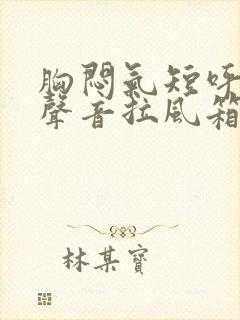 胸悶氣短呼
聲音拉風箱
林某寶